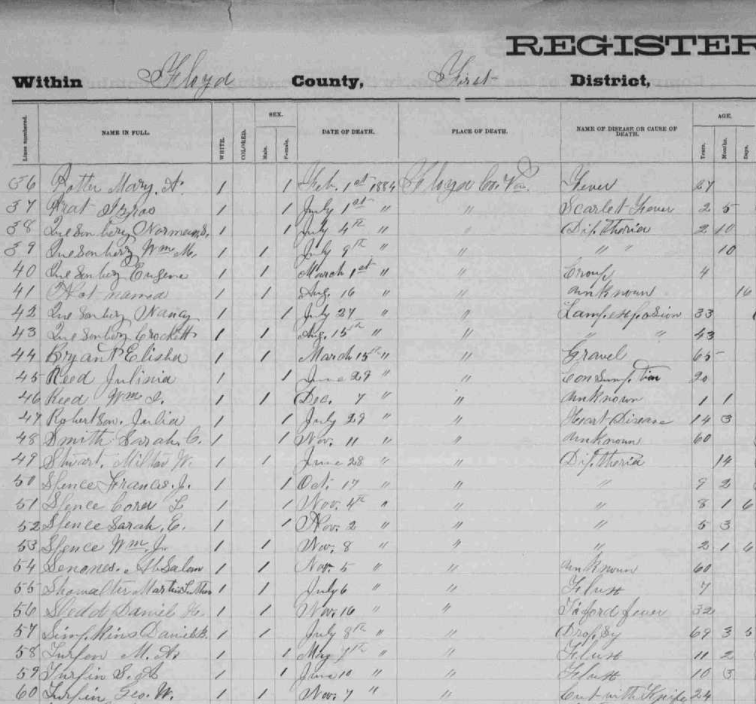 REGISTER
Within Floyd County, First District,
Lines numbered. NAME IN FULL. WHITE. COLORED. SEX. Male. Female. DATE OF DEATH. PLACE OF DEATH. NAME OF DISEASE OR CAUSE OF DEATH. AGE. Years. Months. Days.
36 Mary A. 1 1 Feb. 1st 1884 Floyd Co. Va. Fever 27
37 1 1 July 1st " " Scarlet Fever 2 5
38 Quesenbery 1 1 July 4th " " Diptheria 2 10
39 Quesenbery Wm M. 1 1 July 9th " " " " 10
40 Quesenbery Eugene 1 1 March 1st " " Croup 4
41 Not named 1 1 Aug. 16 " " unknown 16
42 Quesenbery Nancy 1 1 July 27 " " Lamp explosion 33
43 Quesenbery Crockett 1 1 Aug. 15th " " " " 43
44 Bryant Elisha 1 1 March 15th " " Gravel 65
45 Reed 1 1 June 29 " " Consumption
46 Reed Wm 1 1 Dec. 7 " " unknown 1 1
47 Robertson Julia 1 1 July 29 " " Heart Disease 14 3
48 Smith Sarah C. 1 1 Nov. 11 " " unknown 60
49 Stuart, Milton W. 1 1 June 28 " " Diptheria 14
50 Spence Frances J. 1 1 Oct. 17 " " " 9 2
51 Spence Cora L 1 1 Nov. 4th " " " 8 1 6
52 Spence Sarah, E. 1 1 Nov. 2 " " " 5 3
53 Spence Wm. J. 1 1 Nov. 8 " " " 2 1 6
54 1 1 Nov. 5 " " unknown 60
55 Showalter Martin 1 1 July 6 " " Flux 7
56 Sledd Daniel 1 1 Nov. 16 " " Tiford fever 32
57 Simpkins Daniel 1 1 July 8th " " Dropsy 69 3 5
58 M. A. 1 1 " " Flux 11 2
59 Turpin S. A 1 1 June 10 " " Flux 10 3
60 Turpin Geo. W. 1 1 Nov. 7 " " Cut with Knife 24